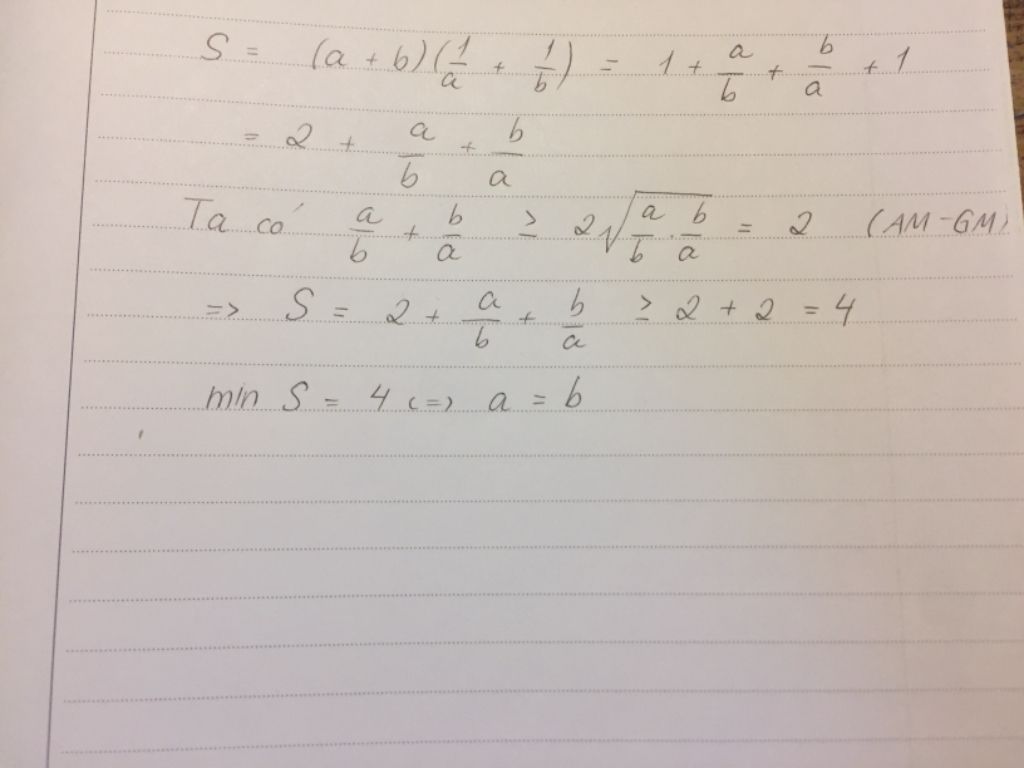 S = (a + b)(1/a + 1/b) = 1 + a/b + b/a + 1
= 2 + a/b + b/a
Ta có a/b + b/a ≥ 2√(a/b . b/a) = 2 (AM-GM)
=> S = 2 + a/b + b/a ≥ 2 + 2 = 4
min S = 4 <=> a = b